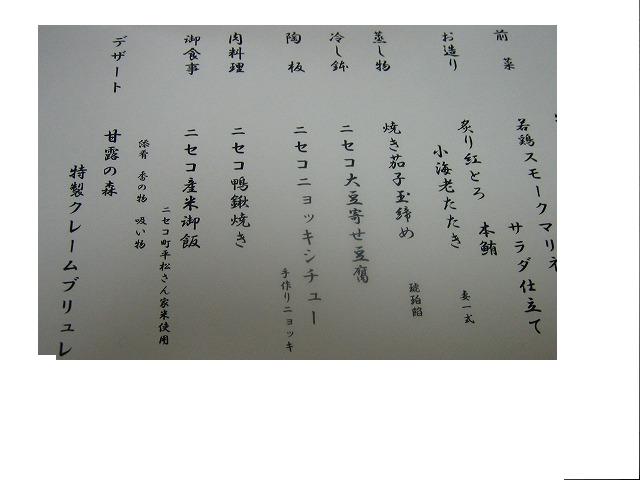 前菜
若鶏スモークマリネ
サラダ仕立て
お造り
炙り紅とろ 本鮪
小海老たたき 妻一式
蒸し物
焼き茄子玉締め
琥珀餡
冷し鉢
ニセコ大豆寄せ豆腐
陶板
ニセコニョッキシチュー
手作りニョッキ
肉料理
ニセコ鴨鍬焼き
御食事
ニセコ産米御飯
ニセコ町平松さん家米使用
添肴 香の物 吸い物
デザート
甘露の森
特製クレームブリュレ